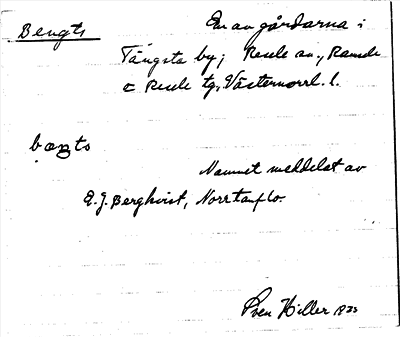 Bengts
En av gårdarna i
Tängsta by; Resele sn., Ramsele
o Resele tg, Västernorrl. l.
Namnet meddelat av
E.J. Berghvist, Norrtanflo.
Sven Hiller 1933